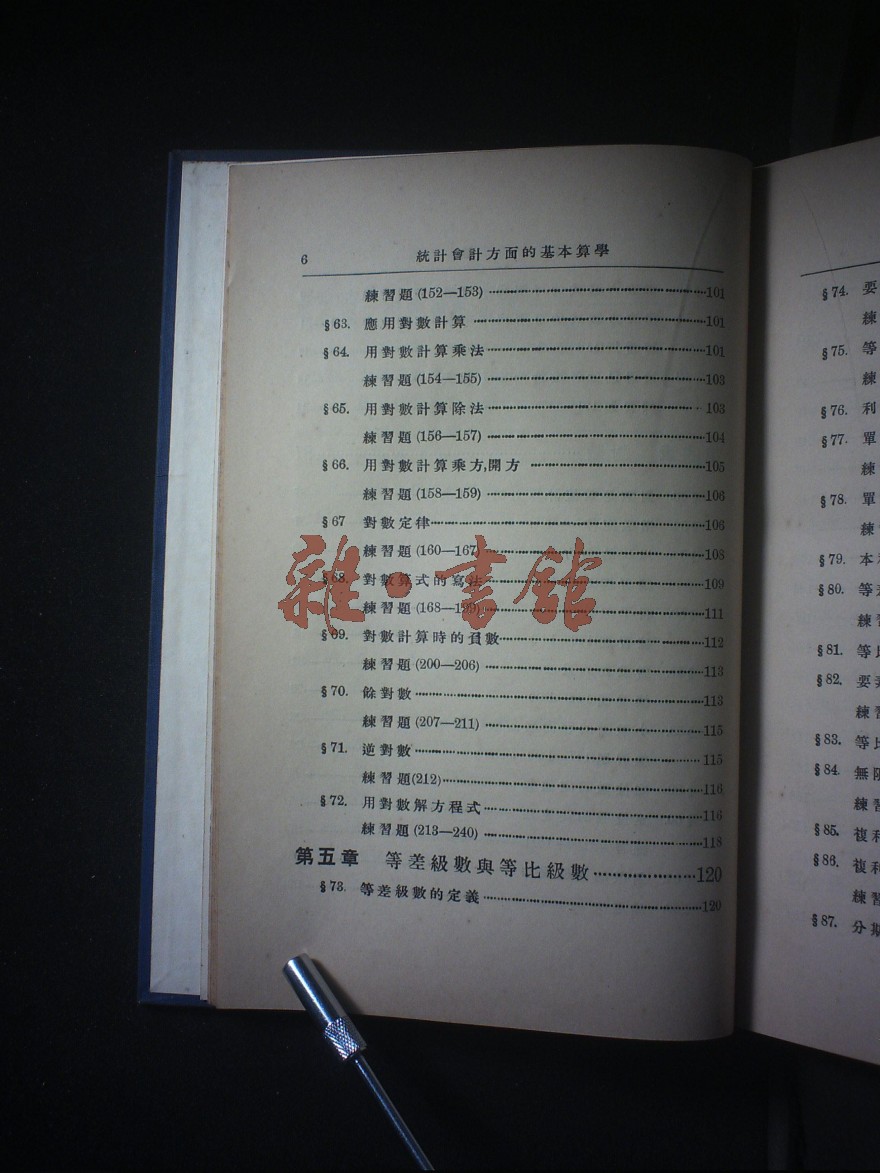 6 統計會計方面的基本算學
練習題(152—153)……101
§63. 應用對數計算……101
§64. 用對數計算乘法……101
練習題(154—155)……103
§65. 用對數計算除法……103
練習題(156—157)……104
§66. 用對數計算乘方,開方……105
練習題(158—159)……106
§67 對數定律……106
練習題(160—167)……108
§68. 對數算式的寫法……109
練習題(168—199)……111
§69. 對數計算時的負數……112
練習題(200—206)……113
§70. 餘對數……113
練習題(207—211)……115
§71. 逆對數……115
練習題(212)……116
§72. 用對數解方程式……116
練習題(213—240)……118
第五章 等差級數與等比級數……120
§73. 等差級數的定義……120
雜·書館
§74. 要
練
§75. 等
練
§76. 利
§77. 單
練
§78. 單
練
§79. 本
§80. 等差
練習
§81. 等比
§82. 要素
練習
§83. 等比
§84 無限
練習
§85. 複利
§86. 複利
練習
§87. 分期